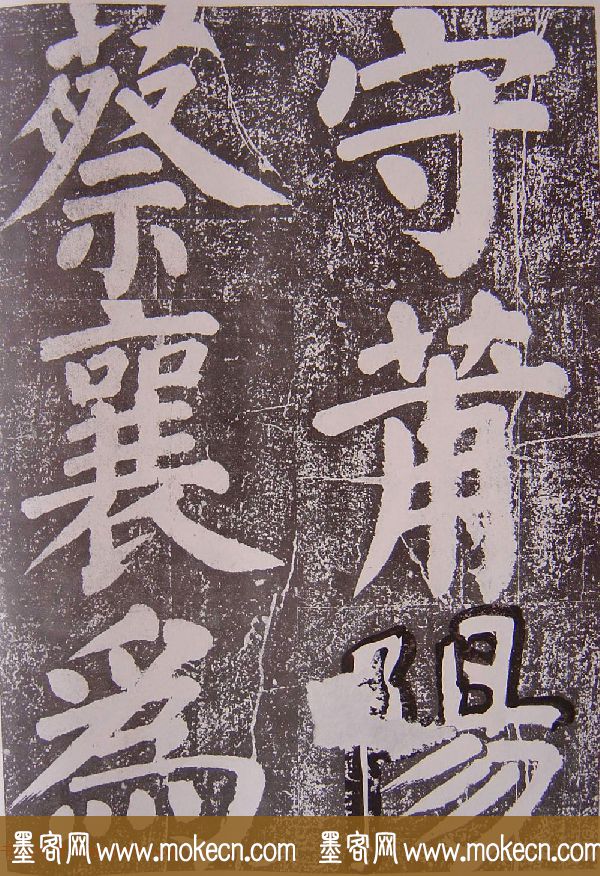 守莆陽
蔡襄為
墨客网 www.mokecn.com 墨客网 www.mokecn.com